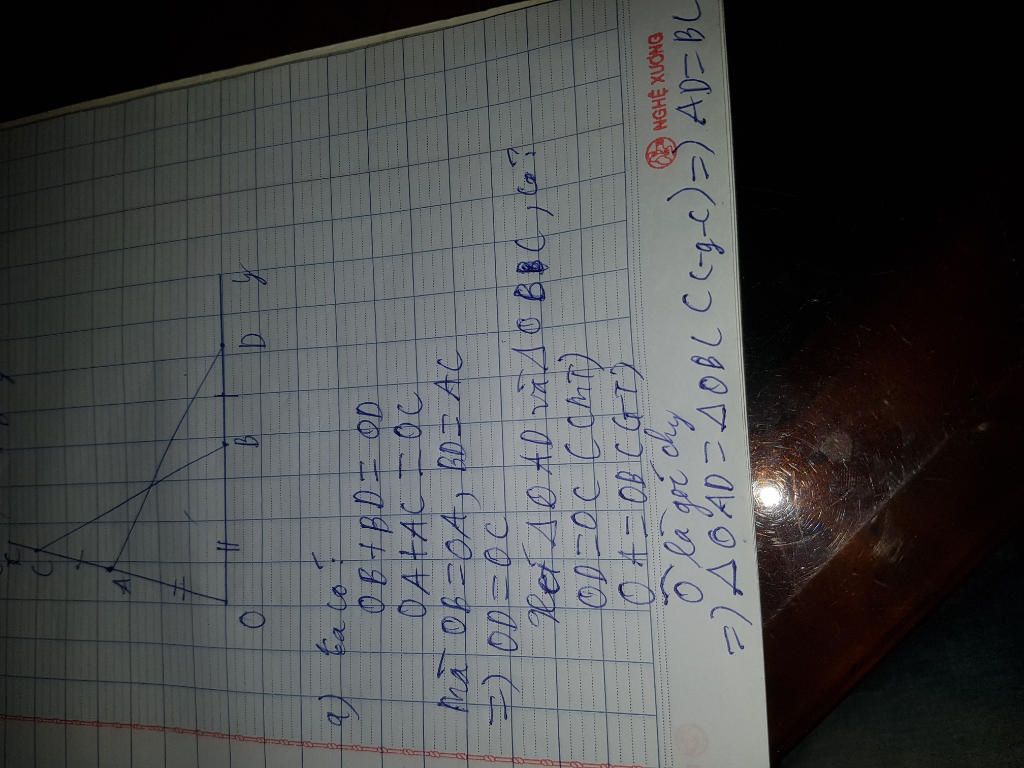 x
C
A
O
H
B
D
y
a) ta có:
OB + BD = OD
OA + AC = OC
mà OB = OA, BD = AC
=) OD = OC
Xét Δ OAD và Δ OBC, có:
OD = OC (cmT)
OA = OB (GT)
Ô là góc chg
=) Δ OAD = Δ OBC (c-g-c) =) AD = BC
NGHỆ XƯƠNG